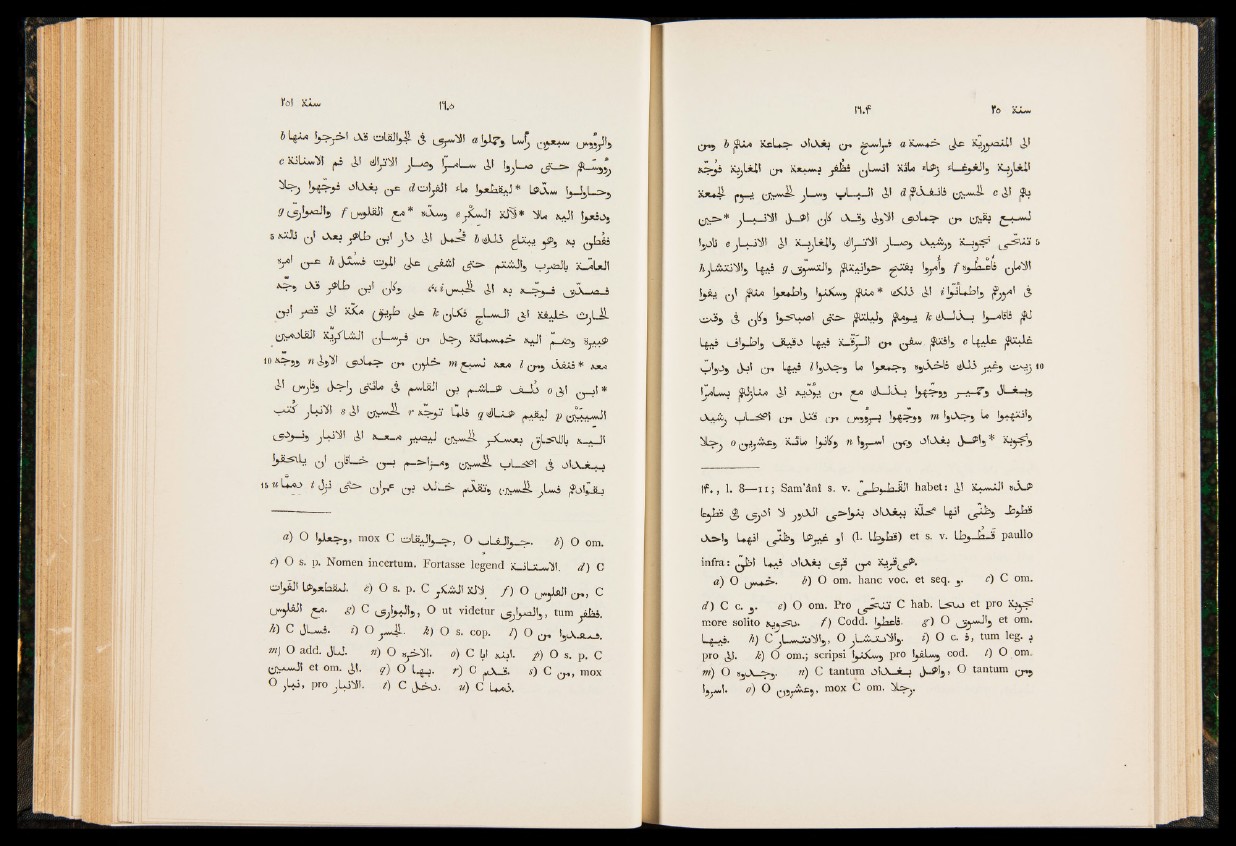 ١٦.۴ سنة ٢٥
الى المنصوريّة على خمسة a فراسخ من بغداد جماعة منهم b ومن
المغاربة والغوغاء زهاء مائة انسان فظفر بسبعة من المغاربة فوجّه
بهم الى c الحسين فانفذهم d الى الباب وسار الحسين يوم الجمعة
لسبع بقين من جمادى الاولى وقد كان اهل الانبار *حين
5 تنحّى نجوبة ورشيد وصار الاتراك والمغاربة الى الانبار e نادوا
الامان فأعطوا f وأمروا بفتح حوانيتهم والتسوّق g فيها والانتشار h
في امورهم واطمأنّوا i الى ذلك *منهم وسكنوا واطمعوا منهم ان يفوا
لهم فاقاموا بذلك k يومهم وليلتهم حتى اصبحوا وكان في وقت
غلبتهم عليها c وافتهم سفن من الرقّة فيها دقيق واطواف فيها
10 زيت وغير ذلك فأخذوه وجمعوا ما وجدوا l فيها من ابل ودوابّ
وبغال وحمير ووجّهوا بذلك مع من يؤدّيه الى منازلهم بسامرّا
وانتهبوا ما وجدوا m ووجّهوا برؤوس من قتل من اصحاب رشيد
ونجوبة *واهل بغداد ومن اسروا n وكانوا مائة وعشرين o رجلا
l. 8—11; Sam'ânî s. v. القطوطى habet: هذه النسبة الى
قطوط وظنّى انها محلّة بنواحى بغداد الدور لا ادرى هى قطوطا
او غيرها وظنّى انهما واحد (l. قطوطا) et s. v. paullo
infra: هى قرية من قرى بغداد فيما اظنّ.
a) O خمس. b) O om. hanc voc. et seq. و. c) C om.
d) C c. و. e) O om. Pro تنحّى C hab. et pro نجوبة
more solito. f) Codd. فاعطوا. g) O والسوق et om.
فيها. h) C, O. i) O c. ف, tum leg. ب
pro الى. k) O om.; scripsi وسكنوا pro cod. l) O om.
m) O وجدوه. n) C tantum واهل بغداد, O tantum ومن
اسروا. o) O وعشرون, mox C om. رجلا.
سنة ٢٥١ ١٦.٥
والرؤوس سبعين رأسا وحملوا a الاسرى في الجوالقات قد اخرجوا منها b
رؤوسهم حتى صاروا الى سامرّا وصار الاتراك الى فم الاستانة c
وحاولوا سدّها *ليقطعوا ماء الفرات d عن بغداد فوجّهوا رجلا
ودفعوا اليه مالا *لآلة السكر e وسدّه *مع القلوس f والصوارى g
5 ففُطن به وهو يبتاع ذلك h فحُمل الى دار ابن طاهر بعد ان نالته
العامّة بالضرب والشتم حتى اشفى على الموت فسُئل h عن امره
فصدق فوجّه به الى الحبس i وكان ابن طاهر قد وجّه
الحارث خليفة ابى الساج فكان k على طريق مكّة الى قصر ابن
هبيرة وضمّ اليه خمسمائة رجل من فرسان الشاكريّة القادمين
10 معه *فنفذ ومن l معه لسبع m خلون من جمادى الاولى n ووجّه
*ابن o ابى دلف هاشم بن القاسم في مائتى راجل وفارس الى
السيبين p ليقيم هناك q فلمّا توجّه r الحسين الى s الانبار كتب
اليه باللحاق بعسكر الحسين ليصير معه الى الانبار ونودى
ببغداد في اصحاب الحسين ومزاحم بن خاقان ان يلحقوا
15 بقوّادهم فسار الحسين وتقدّم خالد بن عمران حتى نزل t دممّا u
a) O وجعلوا, mox C جواليقات, O. b) O om.
c) O s. p. Nomen incertum. Fortasse legend الاستانة. d) C
ليقطعوها الفرات. e) O s. p. C. f) O من القلوس, C
مع القلوس. g) C, O ut videtur والصوارى, tum فظفر.
h) C فسال. i) O الجسر. k) O s. cop. l) O من.
m) O add. ليال. n) O الاخرة. o) C. p) O s. p. C
السين et om. الى. q) O بها. r) C قدم. s) C من, mox
O انبار, pro الانبار. t) C دخل. u) C.